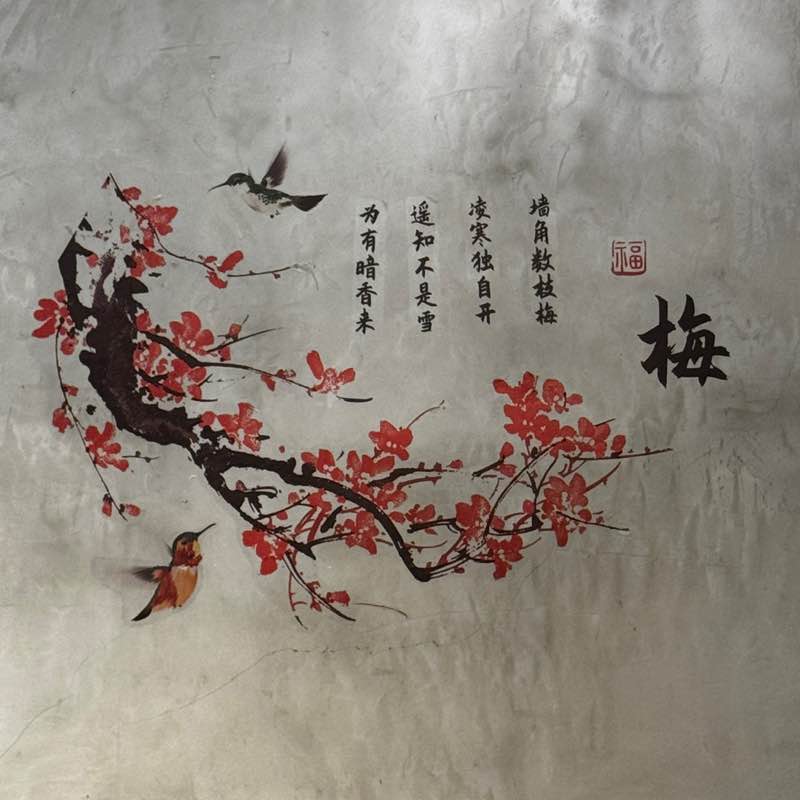 梅
福
墙角数枝梅
凌寒独自开
遥知不是雪
为有暗香来